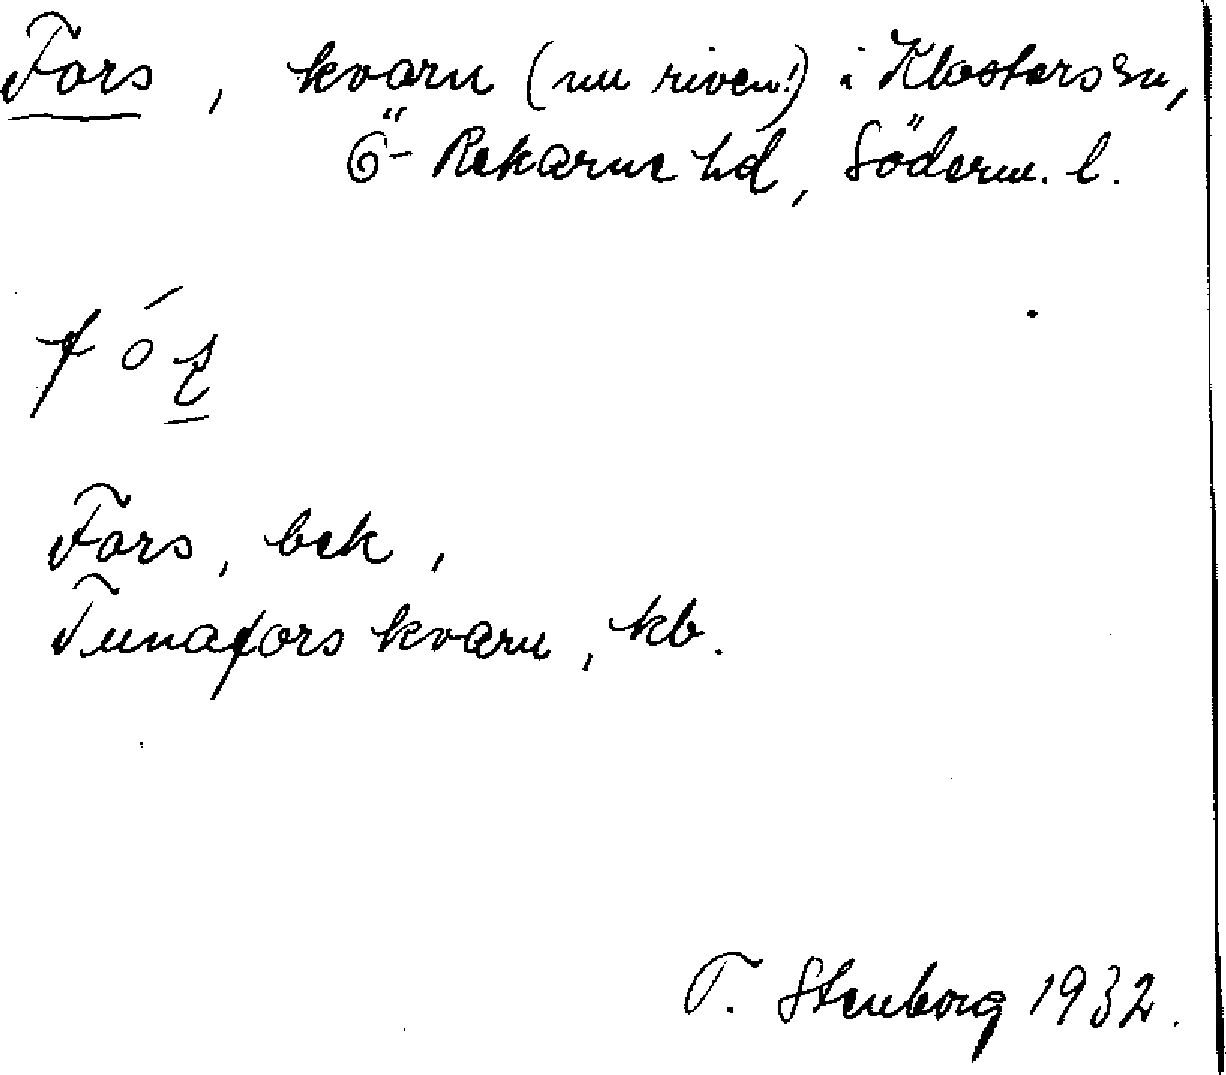 Fors, kvarn (nu riven!) i Klosters sn,
Ö-Rekarne hd, Söderm. l.
Fors, bek,
Tunafors kvarn, kb.
T. Stenborg 1932.